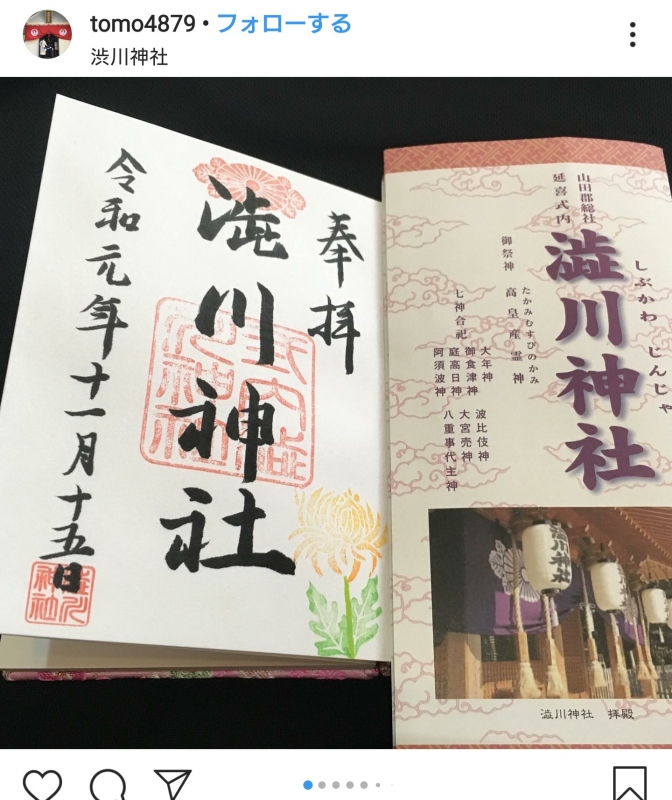 tomo4879 • フォローする
渋川神社
奉拝
澁川神社
令和元年十一月十五日
山田郡総社
延喜式内
澁川神社
しぶかわ じんじゃ
御祭神 高皇産霊神
たかみむすびのかみ
七神合祀
大年神 波比伎神
御食津神 大宮売神
庭高日神 八重事代主神
阿須波神
澁川神社
澁川神社 拝殿